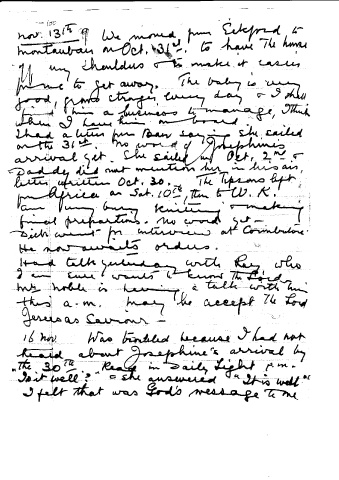 Nov. 13th We moved from Eckford to
Montauban on Oct. 31st. to have the house
off my shoulders & to make it easier
for me to get away. The baby is very
good, grows stronger every day & I shall
find him a business to manage, I think
when I have him on board.
I had a letter from Bear saying she sailed
on the 31st. No word of Josephine's
arrival yet. She sailed Oct. 2nd &
Daddy did not mention her in his air
letter written Oct. 30. The Tipsons left
for Africa on Sat. 10th, then to W. K.
am very busy knitting & making
final preparations. No word yet -
Dick went for interview at Coimbatore
He now awaits orders.
Had talk yesterday with Ray who
I am sure wants to know the Lord
Mr Noble is having a talk with him
this a.m. May he accept the Lord
Jesus as Saviour -
16 Nov Was troubled because I had not
heard about Josephine's arrival by
the 30th. Read in Daily Light p.m.
"Is it well?" "She answered "It is well"
I felt that was God's message to me